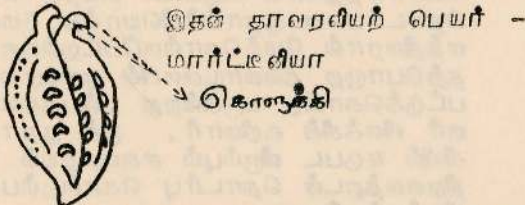 இதன் தாவரவியற் பெயர் -
மார்ட்டீனியா
கொளுக்கி